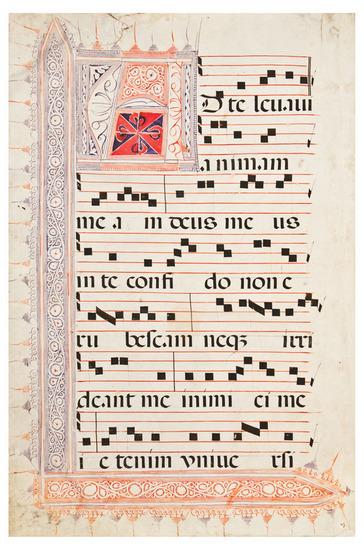 A D te leuaui
animam
me a m deus me us
in te confi do non e
ru bescam neq3 irri
deant me inimi ci me
i etenim vniue rsi